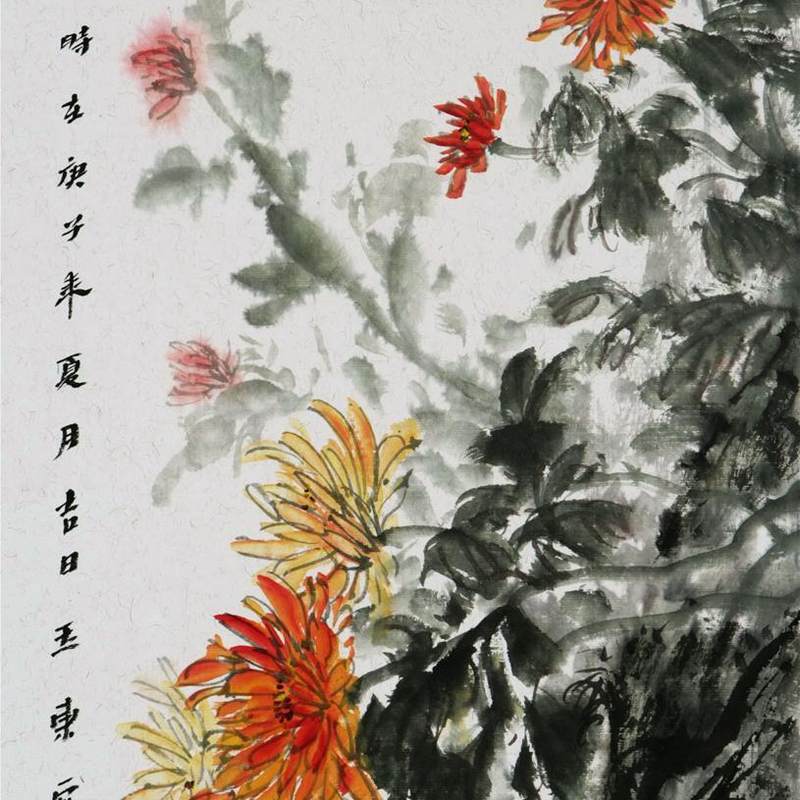 時在庚子年夏月吉日王東